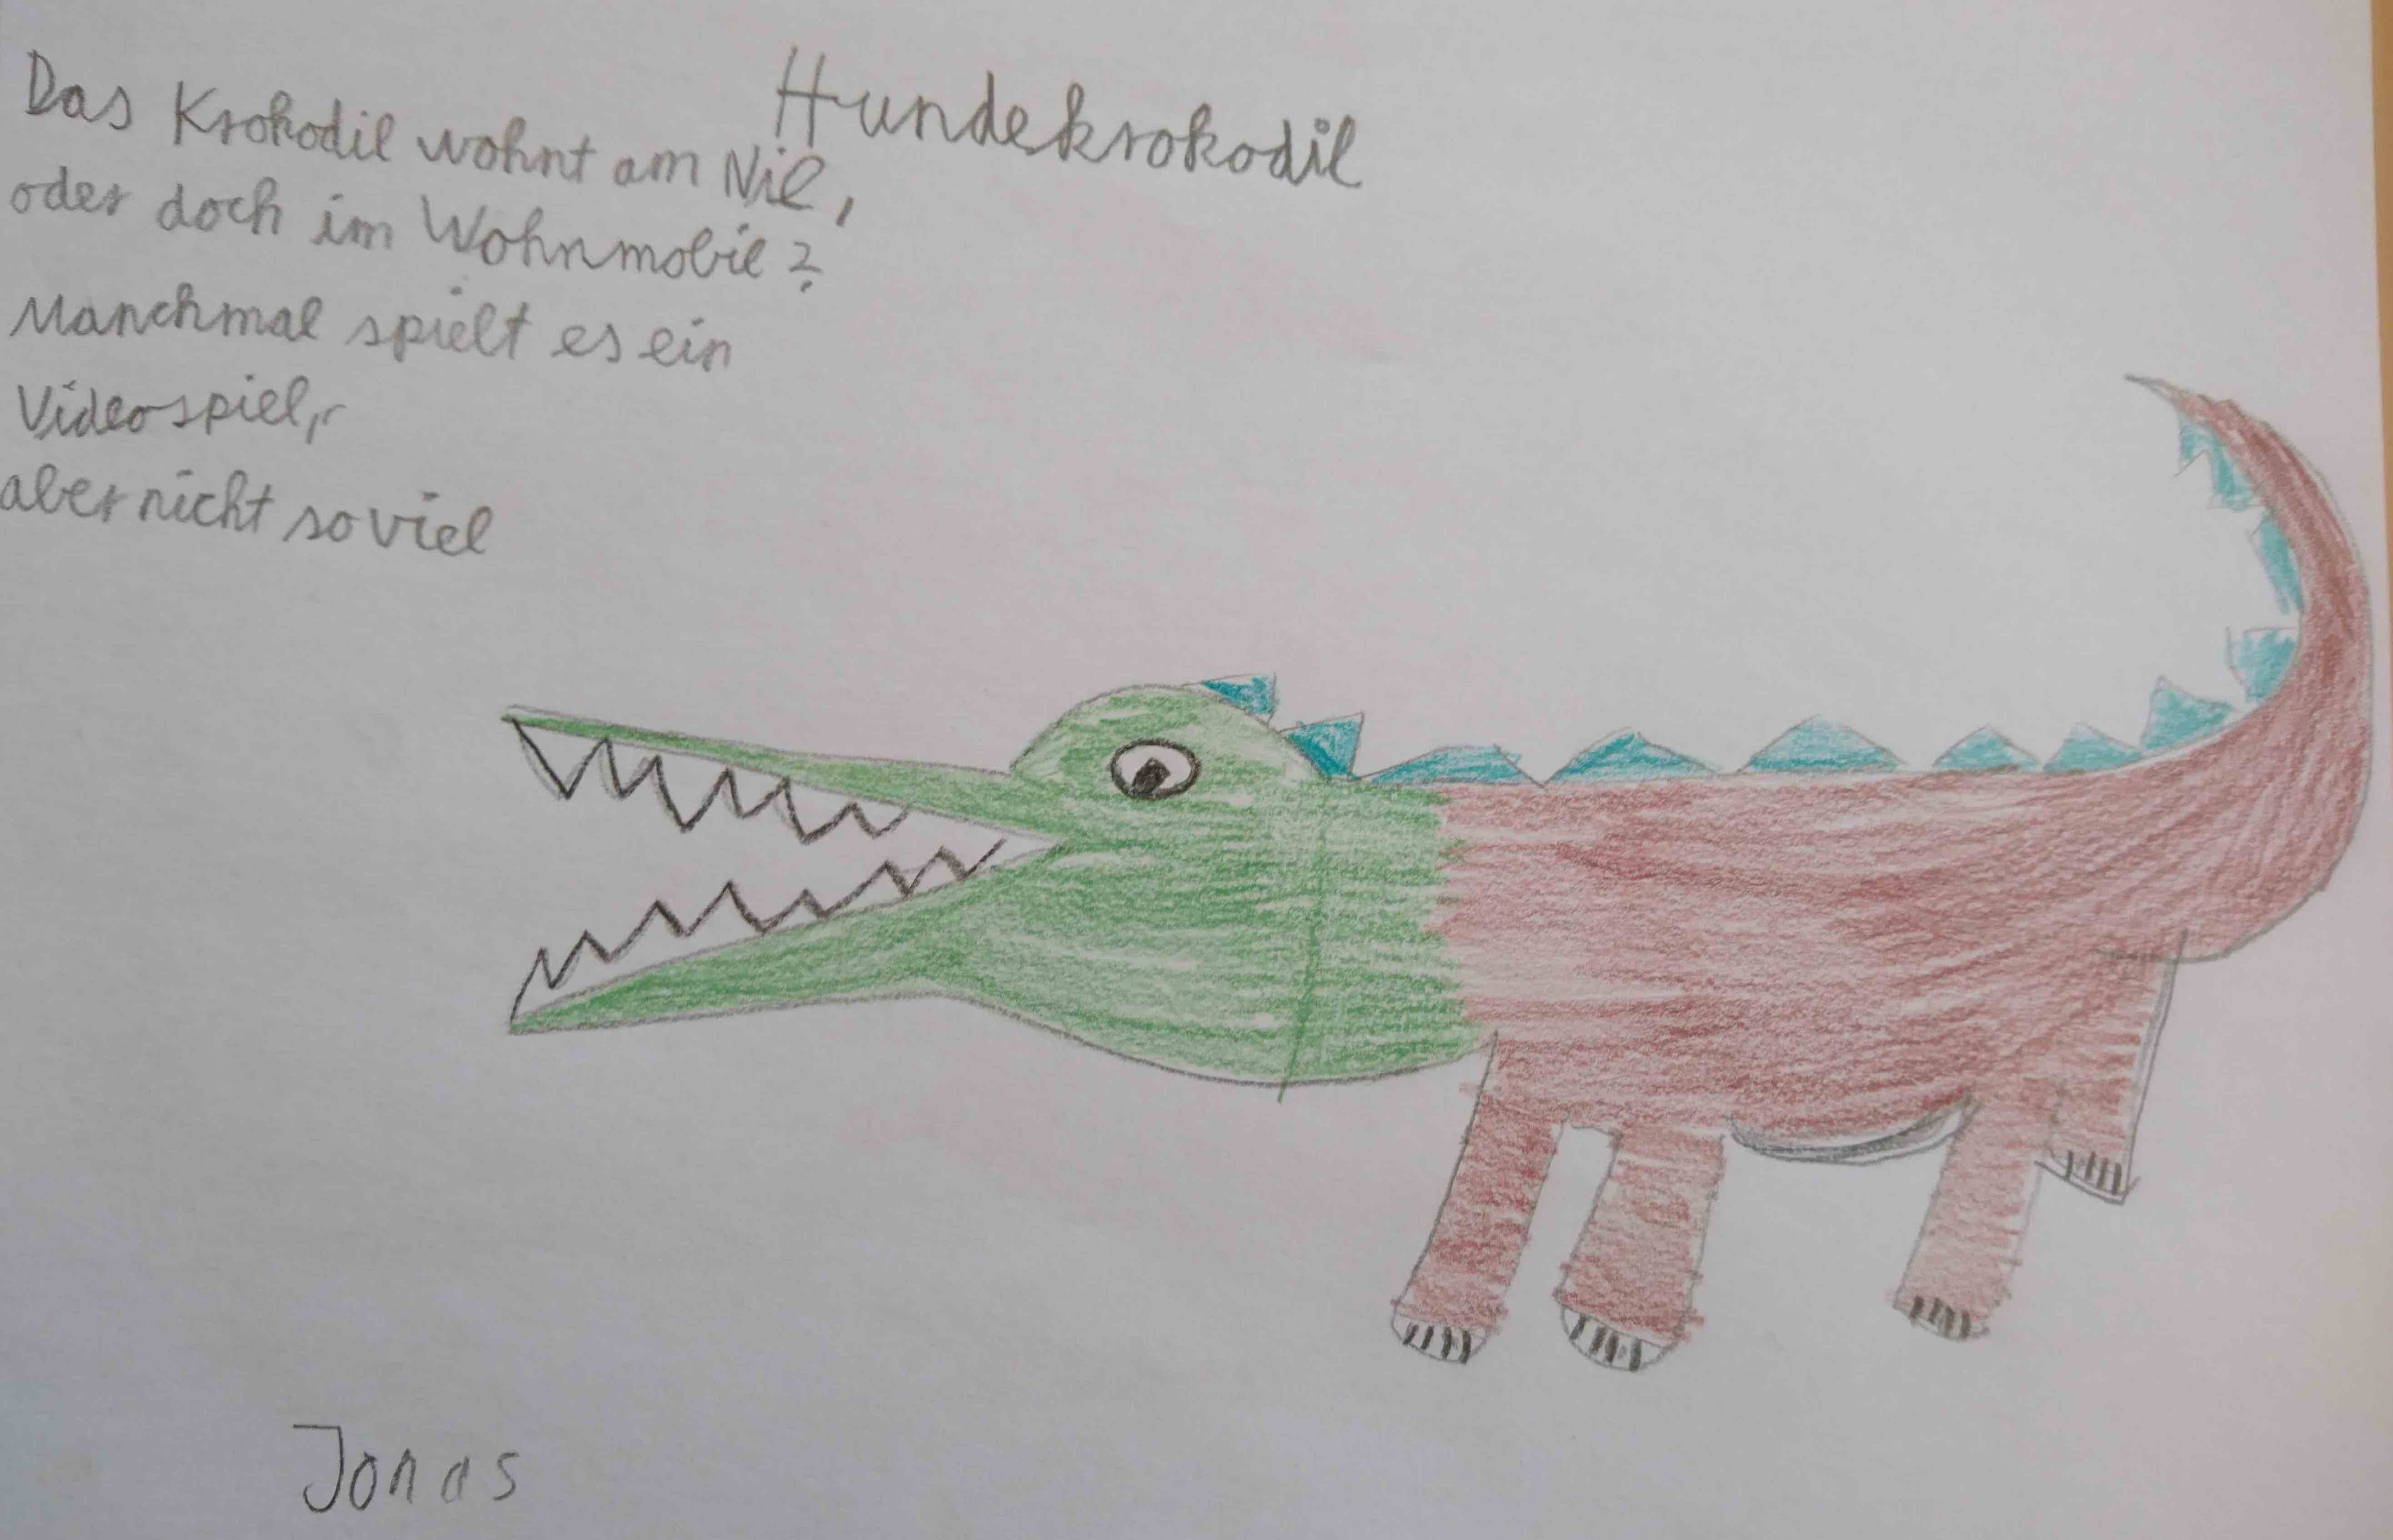 Hundekrokodil
Das Krokodil wohnt am Nil,
oder doch im Wohnmobil?
Manchmal spielt es ein
Videospiel,
aber nicht so viel
Jonas